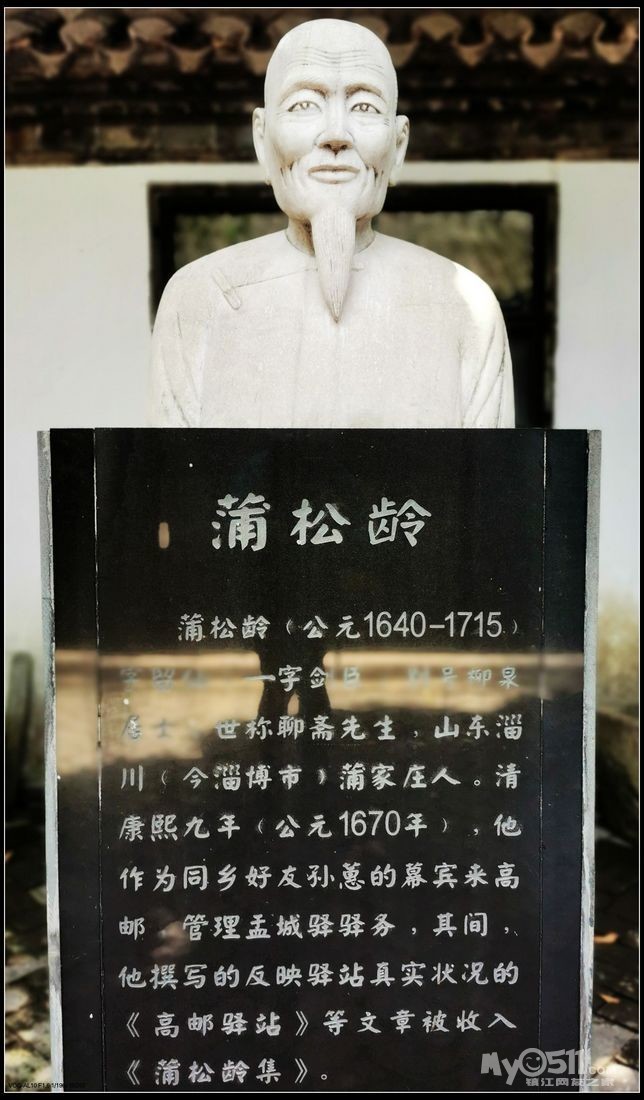 蒲松龄
蒲松龄（公元1640-1715）
字留仙，一字剑臣，别号柳泉
居士，世称聊斋先生，山东淄
川（今淄博市）蒲家庄人。清
康熙九年（公元1670年），他
作为同乡好友孙蕙的幕宾来高
邮，管理盂城驿驿务，其间，
他撰写的反映驿站真实状况的
《高邮驿站》等文章被收入
《蒲松龄集》。
My0511.com
镇江网友之家